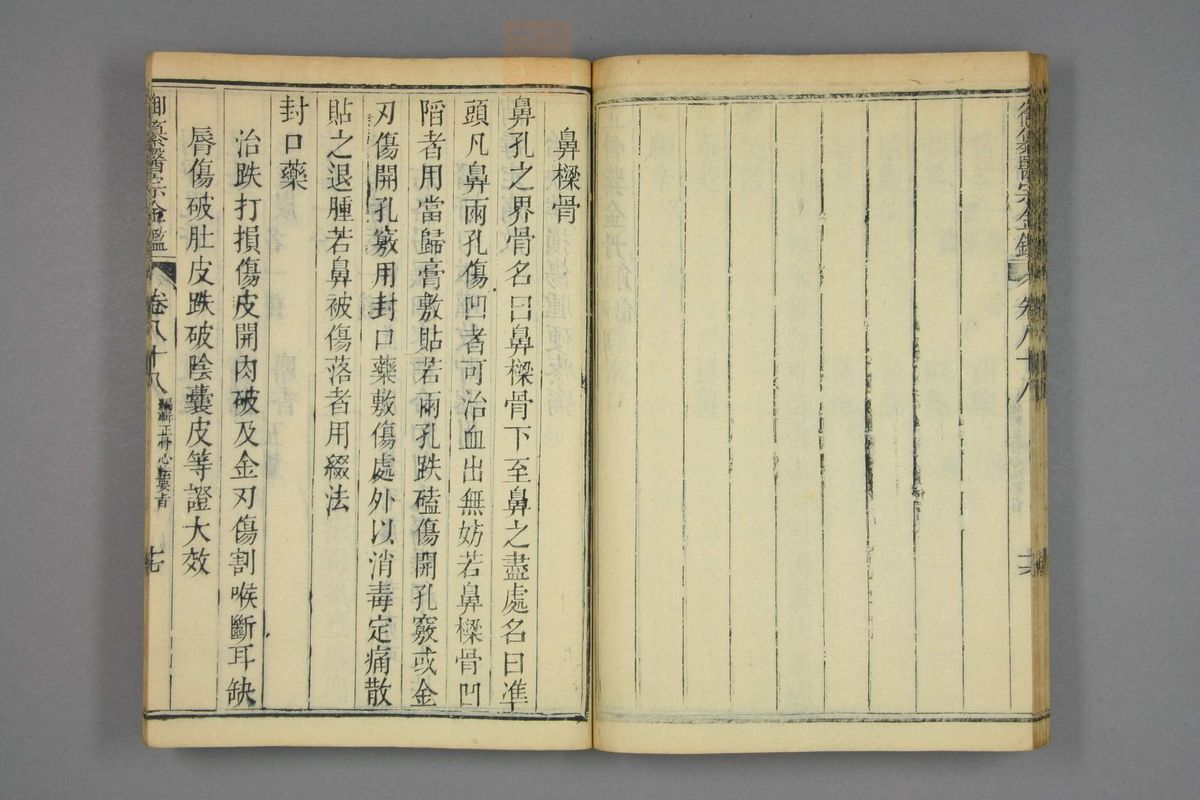 御纂醫宗金鑑 卷八十八
鼻樑骨
鼻孔之界骨名曰鼻樑骨下至鼻之盡處名曰準
頭凡鼻兩孔傷凹者可治血出無妨若鼻樑骨凹
陷者用當歸膏敷貼若兩孔跌磕傷開孔竅或金
刃傷開孔竅用封口藥敷傷處外以消毒定痛散
貼之退腫若鼻被傷落者用綴法
封口藥
治跌打損傷皮開肉破及金刃傷割喉斷耳缺
唇傷破肚皮跌破陰囊皮等證大效
御纂醫宗金鑑 卷八十八 編輯正骨心法要旨 十七